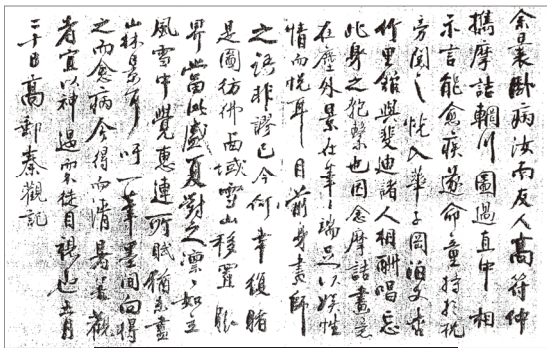 余曩卧病汝南友人高符仲
攜摩詰輞川圖過直中相
示言能愈疾遂命童持於枕
旁閱之恍入華子岡泊文杏
竹里館與斐迪諸人相酬唱忘
此身之匏繫也因念摩詰畫意
在塵外景在筆端足以娛性
情而悅耳目前身畫師
之語非謬已今何幸復睹
是圖彷彿西域雪山移置眼
界當此盛夏對之凜〻如立
風雪中覺惠連所賦猶未盡
山林景耳吁一筆墨間向得
之而愈病今得而清暑善觀
者宜以神遇而不徒目視也五月
二十日高郵秦觀記